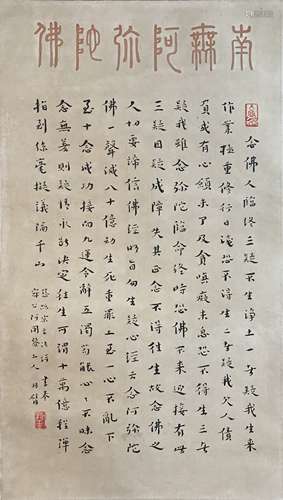 南無阿弥陀佛
念佛人臨終三疑不生淨土一者疑我生來
作業極重修行日淺恐不得生二者疑我欠人債
負或有心願未了及貪嗔癡未息恐不得生三者
疑我雖念弥陀臨命終時恐佛不來迎接有此
三疑因疑成障失其正念不得往生故念佛之
人切要諦信佛經明旨勿生疑心經云念阿弥陀
佛一聲滅八十億劫生死重罪上至一心不亂下
至十念成功接向九蓮令辭五濁苟能心心不昧念
念無差則疑情永斷決定往生可謂十萬億程彈
指到絲毫擬議隔千山
慈照宗主法語 書奉